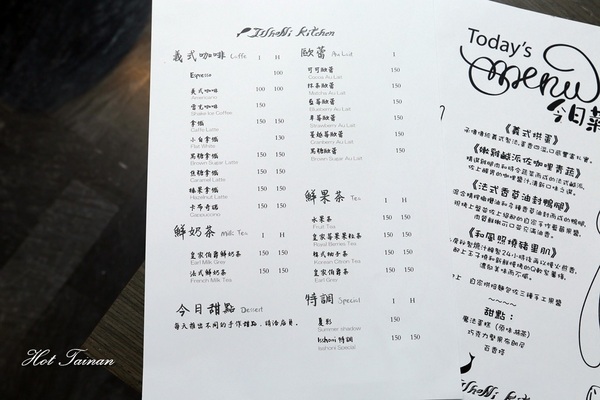 Isshoni Kitchen
義式咖啡 Coffe I H
Espresso 100
美式咖啡 100 100
Americano
雪克咖啡 150
Shake Ice Coffee
拿鐵 150 150
Caffe Latte
小白拿鐵 130
Flat White
黑糖拿鐵 150 150
Brown Sugar Latte
焦糖拿鐵 150 150
Caramel Latte
榛果拿鐵 150 150
Hazelnut Latte
卡布奇諾 150 150
Cappuccino
鮮奶茶 Milk Tea I H
皇家伯爵鮮奶茶 150 150
Earl Milk Grey
法式鮮奶茶 150 150
French Milk Tea
今日甜點 Dessert
每天推出不同的手作甜點，請洽店員。
歐蕾 Au Lait I
可可歐蕾 150
Cocoa Au Lait
抹茶歐蕾 150
Matcha Au Lait
藍莓歐蕾 150
Blueberry Au Lait
草莓歐蕾 150
Strawberry Au Lait
蔓越莓歐蕾 150
Cranberry Au Lait
黑糖歐蕾 150
Brown Sugar Au Lait
鮮果茶 Tea I H
水果茶 150 150
Fruit Tea
皇家莓果果粒茶 150 150
Rosel Berries Tea
韓式柚子茶 150 150
Korean Citron Tea
皇家伯爵 150 150
Earl Grey
特調 Special I H
夏彤 150
Summer shadow
Isshoni 特調 150 150
Isshoni Special
Today's
menu
今日菜
《義式烘蛋》
《嫩雞鹹派佐咖哩青蔬》
《法式香草油封鴨腿》
《和風照燒豬里肌》
~~~~
甜點：
魔法蛋糕（原味.抹茶）
巧克力堅果布朗尼
Hot Tainan